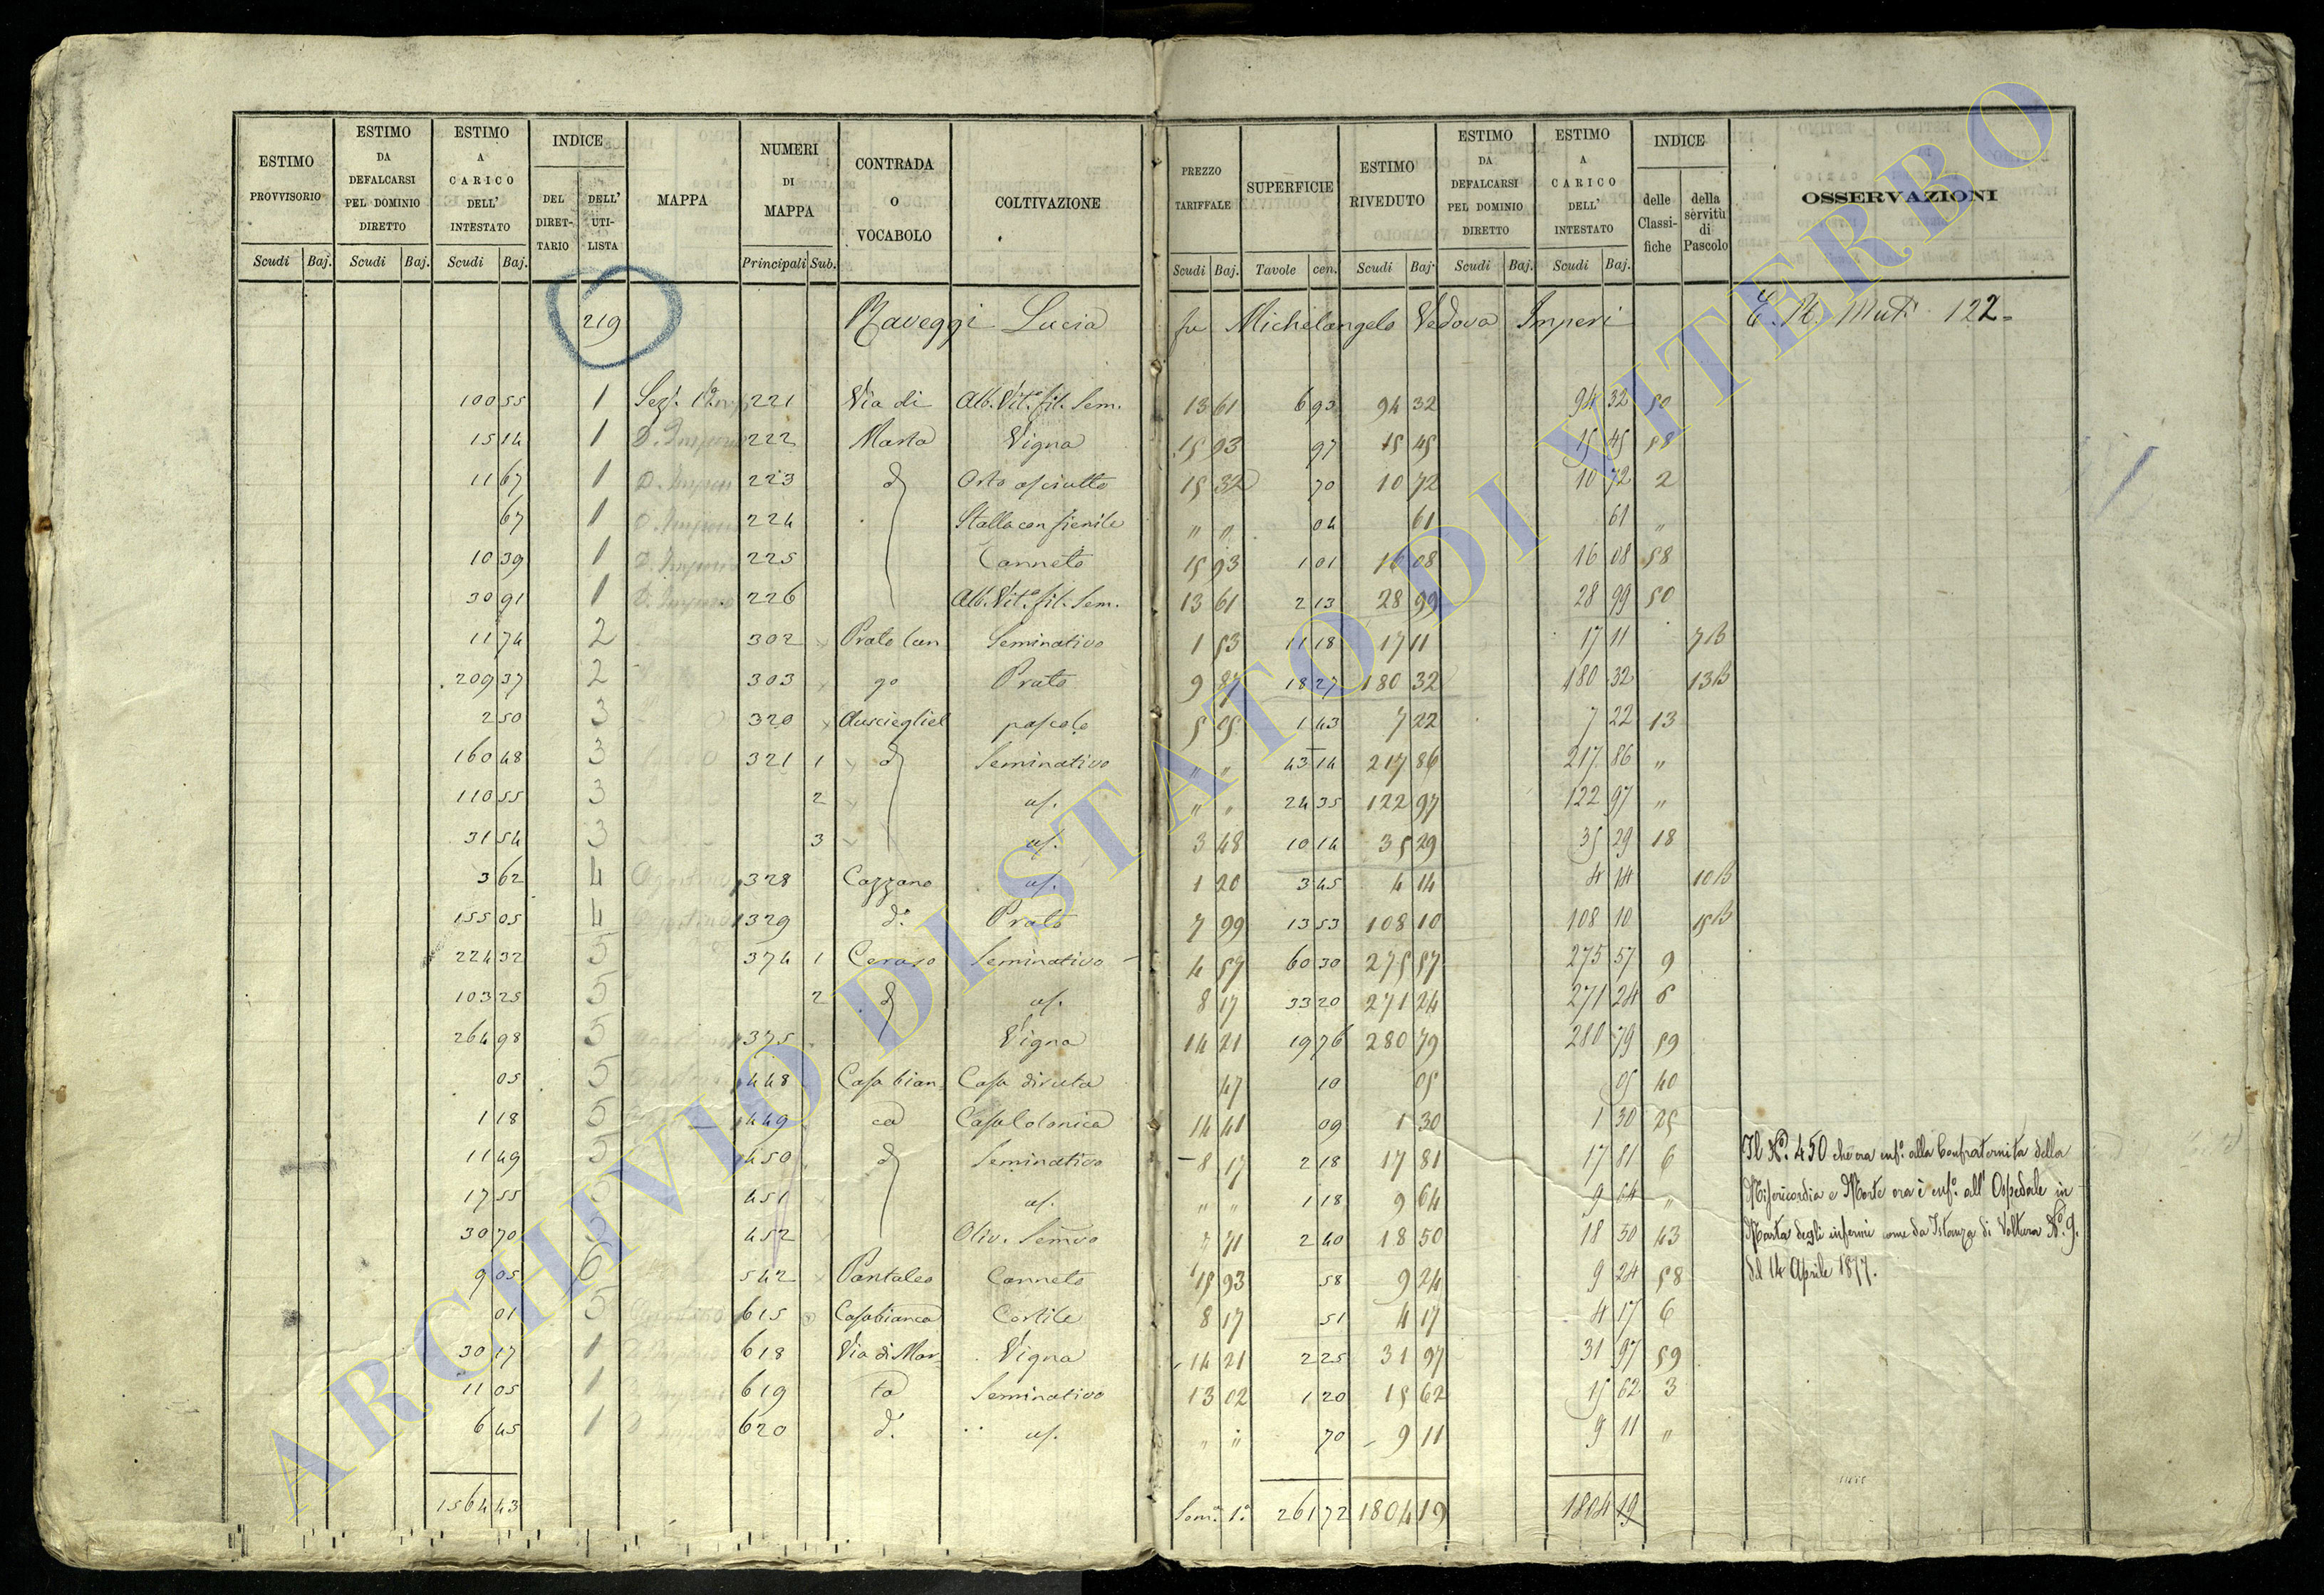 ESTIMO PROVVISORIO | ESTIMO DA DEFALCARSI PEL DOMINIO DIRETTO | ESTIMO A CARICO DELL' INTESTATO | INDICE | MAPPA | NUMERI DI MAPPA | CONTRADA O VOCABOLO | COLTIVAZIONE | PREZZO TARIFFALE | SUPERFICIE | ESTIMO RIVEDUTO | ESTIMO DA DEFALCARSI PEL DOMINIO DIRETTO | ESTIMO A CARICO DELL' INTESTATO | INDICE | OSSERVAZIONI
DEL DIRET-TARIO | DELL' UTI-LISTA | delle Classi-fiche | della servitù di Pascolo
Scudi | Baj. | Scudi | Baj. | Scudi | Baj. | Principali | Sub. | Scudi | Baj. | Tavole | cen. | Scudi | Baj. | Scudi | Baj. | Scudi | Baj.
219 Raveggi Lucia fu Michelangelo Vedova Imperi 122
100 55 1 Sez. 1ª 221 Via di Alb. Vit. fil. Sem. 13 61 6 93 94 32 94 32 50
15 14 1 222 Marta Vigna 15 93 97 15 45 15 45 58
11 67 1 223 d Orto asciutto 15 32 70 10 72 10 72 2
67 1 224 Stalla con fienile " " 04 61 61 "
10 39 1 225 Canneto 15 93 1 01 16 08 16 08 58
30 91 1 226 Alb. Vit. fil. Sem. 13 61 2 13 28 99 28 99 50
11 74 2 302 Prato lun Seminativo 1 53 11 18 17 11 17 11 7B
209 37 2 303 go Prato 9 87 18 27 180 32 180 32 13B
2 50 3 320 pascolo 5 05 1 43 7 22 7 22 13
160 48 3 321 1 d Seminativo " " 43 14 217 86 217 86 "
110 55 3 2 us. " " 24 35 122 97 122 97 "
31 54 3 3 us. 3 48 10 14 35 29 35 29 18
3 62 4 328 Cazzano us. 1 20 3 45 4 14 4 14 10B
155 05 4 329 d.º Prato 7 99 13 53 108 10 108 10 15B
224 32 5 374 1 Ceraso Seminativo 4 57 60 30 275 57 275 57 9
103 25 5 2 d us. 8 17 33 20 271 24 271 24 6
264 98 5 375 Vigna 14 21 19 76 280 79 280 79 59
05 5 448 Casa bian- Casa diruta 47 10 05 05 40
1 18 5 449 ca Casa Colonica 14 41 09 1 30 1 30 25
11 49 5 450 d Seminativo 8 17 2 18 17 81 17 81 6
17 55 5 451 us. " " 1 18 9 64 9 64 "
30 70 5 452 Oliv. Semvo 7 71 2 40 18 50 18 50 43
9 05 6 542 Pantaleo Canneto 15 93 58 9 24 9 24 58
01 5 615 Casabianca Cortile 8 17 51 4 17 4 17 6
30 17 1 618 Via di Mar- Vigna 14 21 2 25 31 97 31 97 59
11 05 1 619 ta Seminativo 13 02 1 20 15 62 15 62 3
6 45 1 620 d.º us. " " 70 9 11 9 11 "
1564 43 Som. 1ª 261 72 1804 19 1804 19
Il Nº 450 che era enf.º alla Confraternita della
Misericordia e Morte ora è enf.º all' Ospedale in
Marta degli infermi come da Istanza di Voltura Nº 9.
del 14 Aprile 1877.
ARCHIVIO DI STATO DI VITERBO